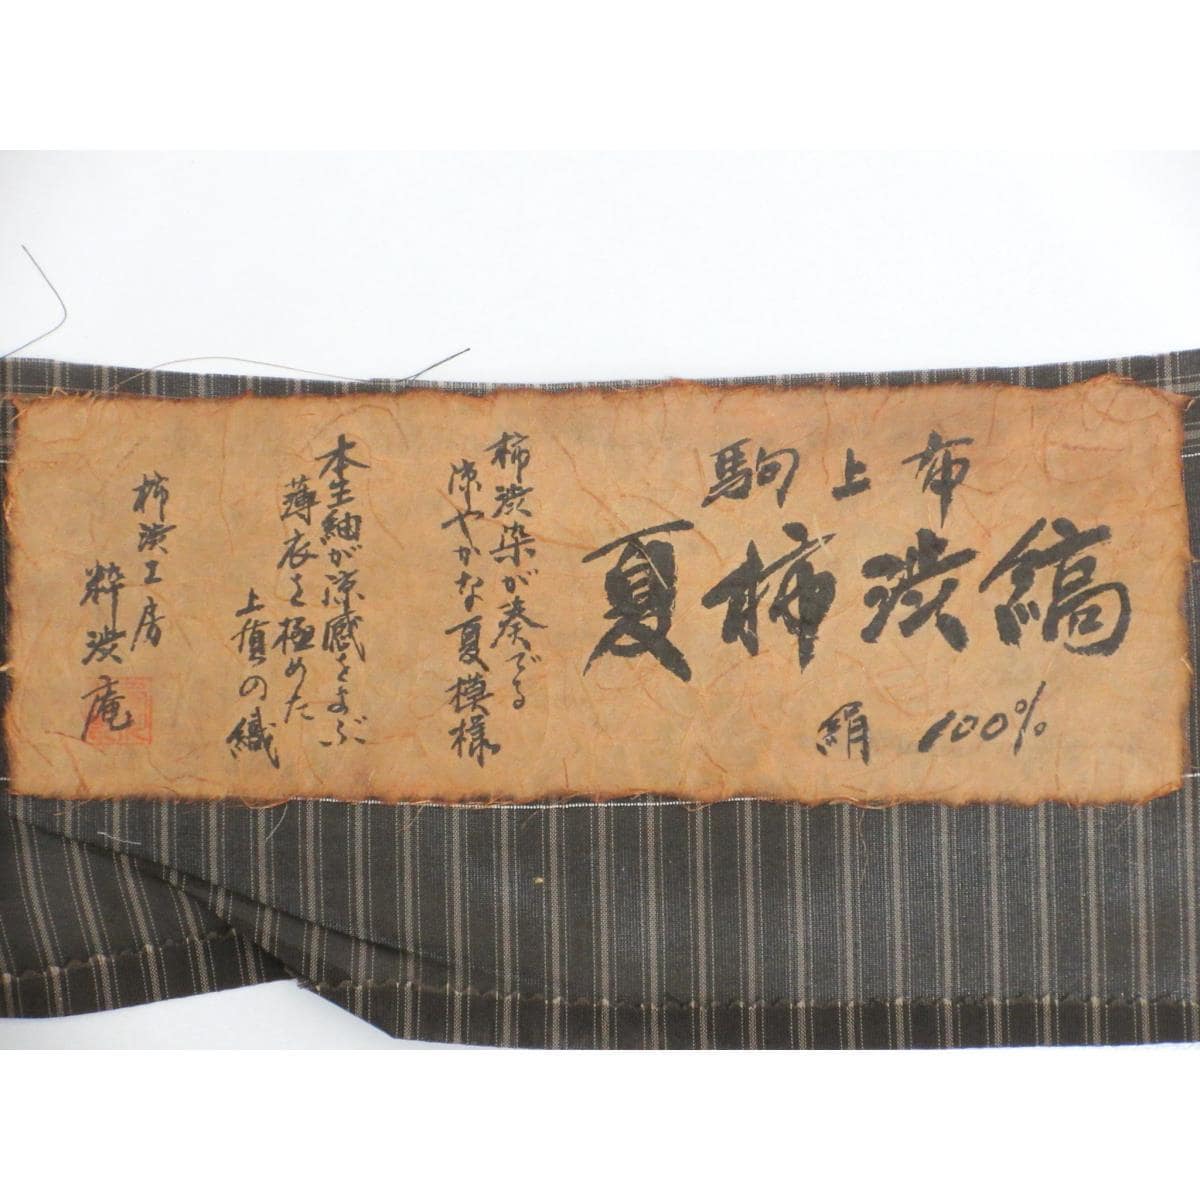 駒上布
夏柿渋縞
絹 100%
柿渋染が奏でる
涼やかな夏模様
本生紬が涼感をよぶ
薄衣を極めた
上質の織
柿渋工房
粋渋庵